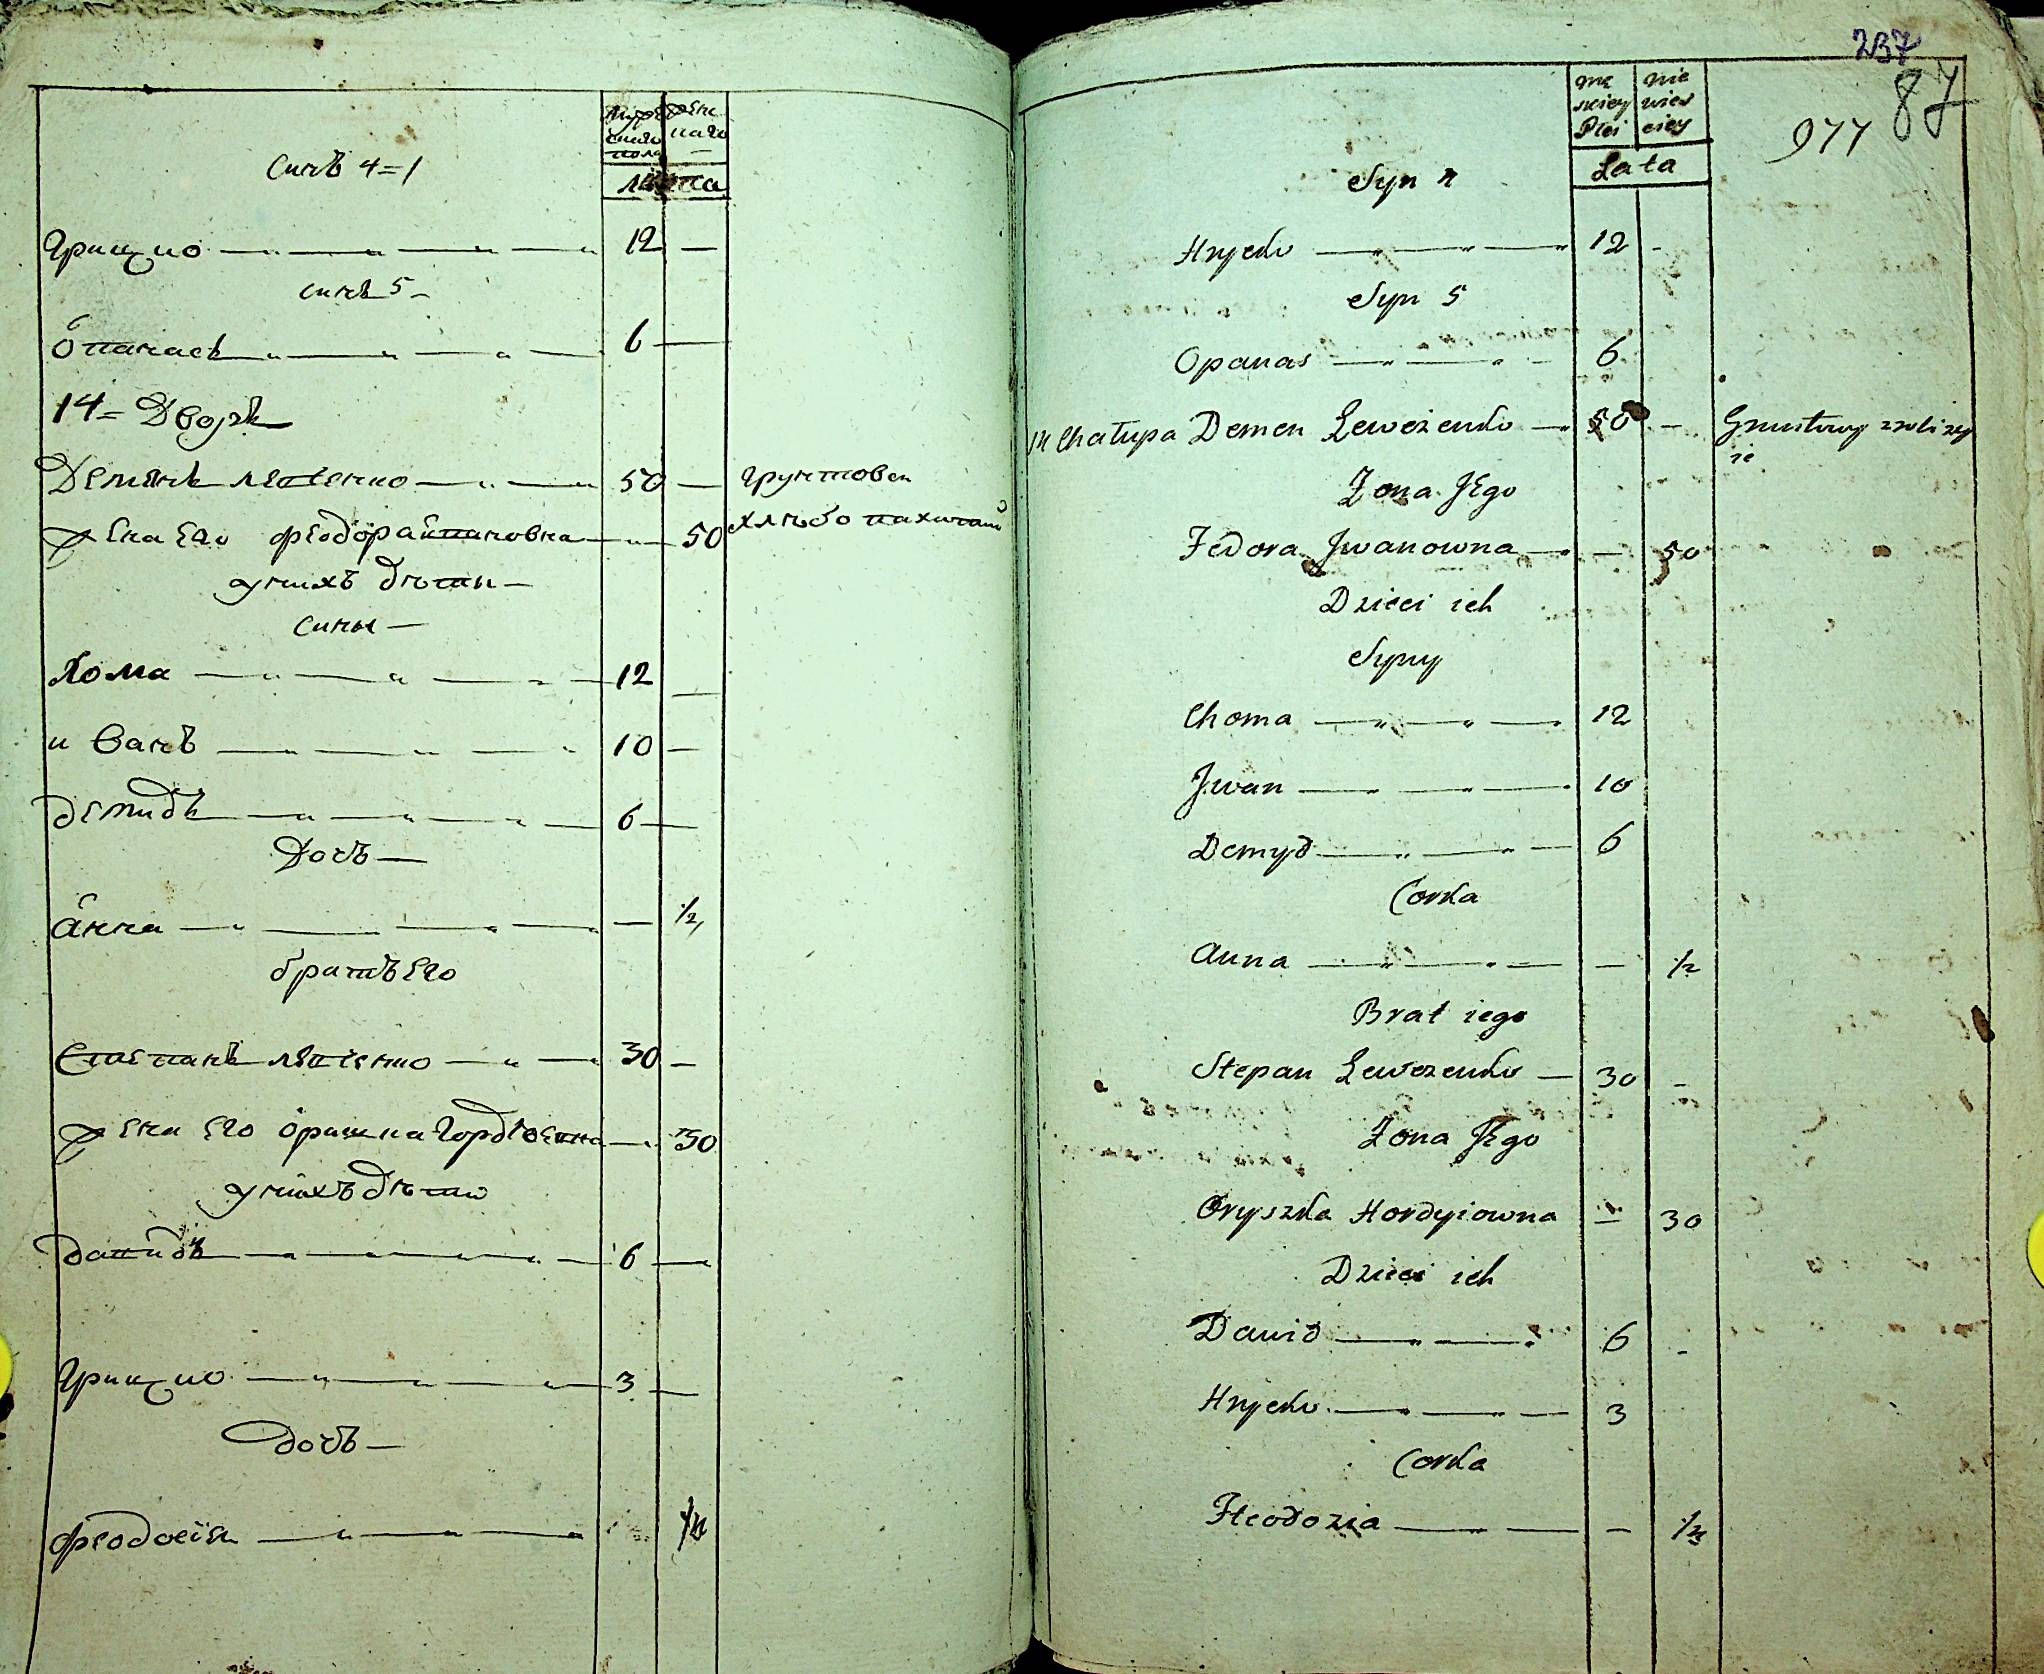 Синъ 4=1
мужескаго пола
женскаго
лѣта
Грицко 12 —
синъ 5 —
Опанасъ 6 —
14= Дворъ
Деменъ 50 — грунтовой
жена его феодора ивановна 50 хлѣбо пахитний
у нихъ дѣти —
сины —
Хома 12 —
иванъ 10 —
демидъ 6 —
Дочъ —
анна — 1/2
братъ его
Степанъ 30 —
жена его оришка Гордѣевна 30
у нихъ дѣти
давидъ 6 —
Грицко 3 —
дочъ —
феодосия
237
87
977
męskiey Płci
niewiesciey
Lata
Syn 4
Hryćko 12 -
Syn 5
Opanas 6
14 Chałupa Demen Lewczenko 50 - Gruntowy
Zona Jego
Fedora Jwanowna — 50
Dzieci ich
Syny
Choma 12
Jwan 10
Demyd 6
Corka
Anna — 1/2
Brat iego
Stepan Lewczenko 30 -
Zona Jego
Oryszka Hordyiowna — 30
Dzieci ich
Dawid 6 -
Hryćko 3
Corka
Fteodozia —